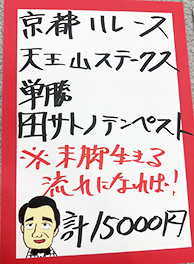 京都11レース
天王山ステークス
単勝
田サトノテンペスト
※末脚生きる
流れになれば!
計15000円